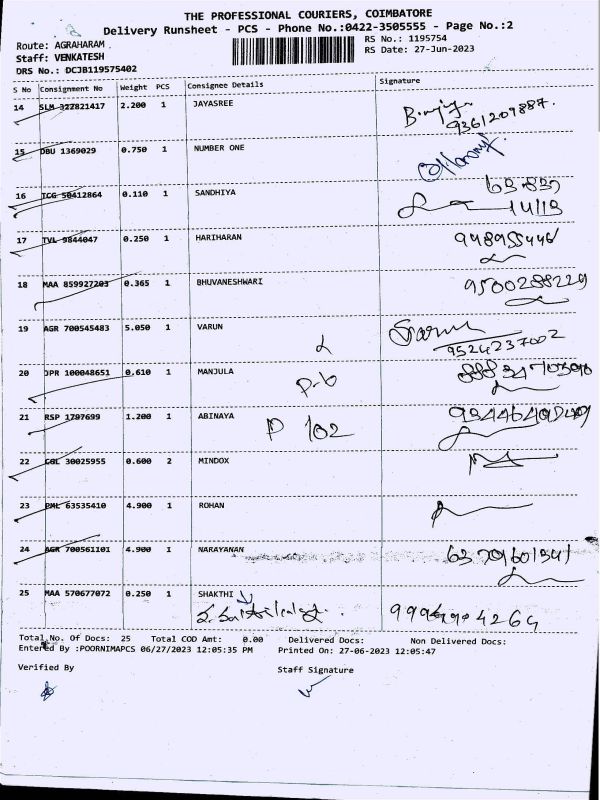 THE PROFESSIONAL COURIERS, COIMBATORE
Delivery Runsheet - PCS - Phone No.:0422-3505555 - Page No.:2
Route: AGRAHARAM
RS No.: 1195754
Staff: VENKATESH
RS Date: 27-Jun-2023
DRS No.: DCJB119575402
S No Consignment No Weight PCS Consignee Details Signature
14 SLM 327821417 2.200 1 JAYASREE
9361209887.
15 DBU 1369029 0.750 1 NUMBER ONE
16 TCG 50412864 0.110 1 SANDHIYA
17 TVL 9844047 0.250 1 HARIHARAN
18 MAA 859927203 0.365 1 BHUVANESHWARI 9500288229
19 AGR 700545483 5.050 1 VARUN
9524237002
20 JPR 100048651 0.610 1 MANJULA
P-6
21 RSP 1797699 1.200 1 ABINAYA
P 102
22 CGL 30025955 0.600 2 MINDOX
23 PML 63535410 4.900 1 ROHAN
24 AGR 700561101 4.900 1 NARAYANAN
25 MAA 570677072 0.250 1 SHAKTHI
Total No. Of Docs: 25 Total COD Amt: 0.00 Delivered Docs: Non Delivered Docs:
Entered By :POORNIMAPCS 06/27/2023 12:05:35 PM Printed On: 27-06-2023 12:05:47
Verified By Staff Signature